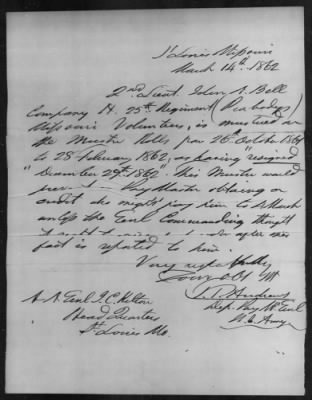 St Louis Missouri
March 14th 1862
2nd Lieut. John A. Bell
Company H. 25th Regiment (Peabodys)
Missouri Volunteers, is mustered on
the Muster Rolls for 26th October 1861
to 28 February 1862, as having resigned
"December 29th 1862" This Muster would
prevent Pay Master obtaining a
credit he might pay him to March
unless the Genl Commanding thought
it after
fact is reported to him.
Very respectfully
Your Obt Svt
T. P. Andrews
Dep. Pay Mr Genl
U.S. Army
A. A. Genl J. C. Kelton
Head Quarters
St Louis Mo.